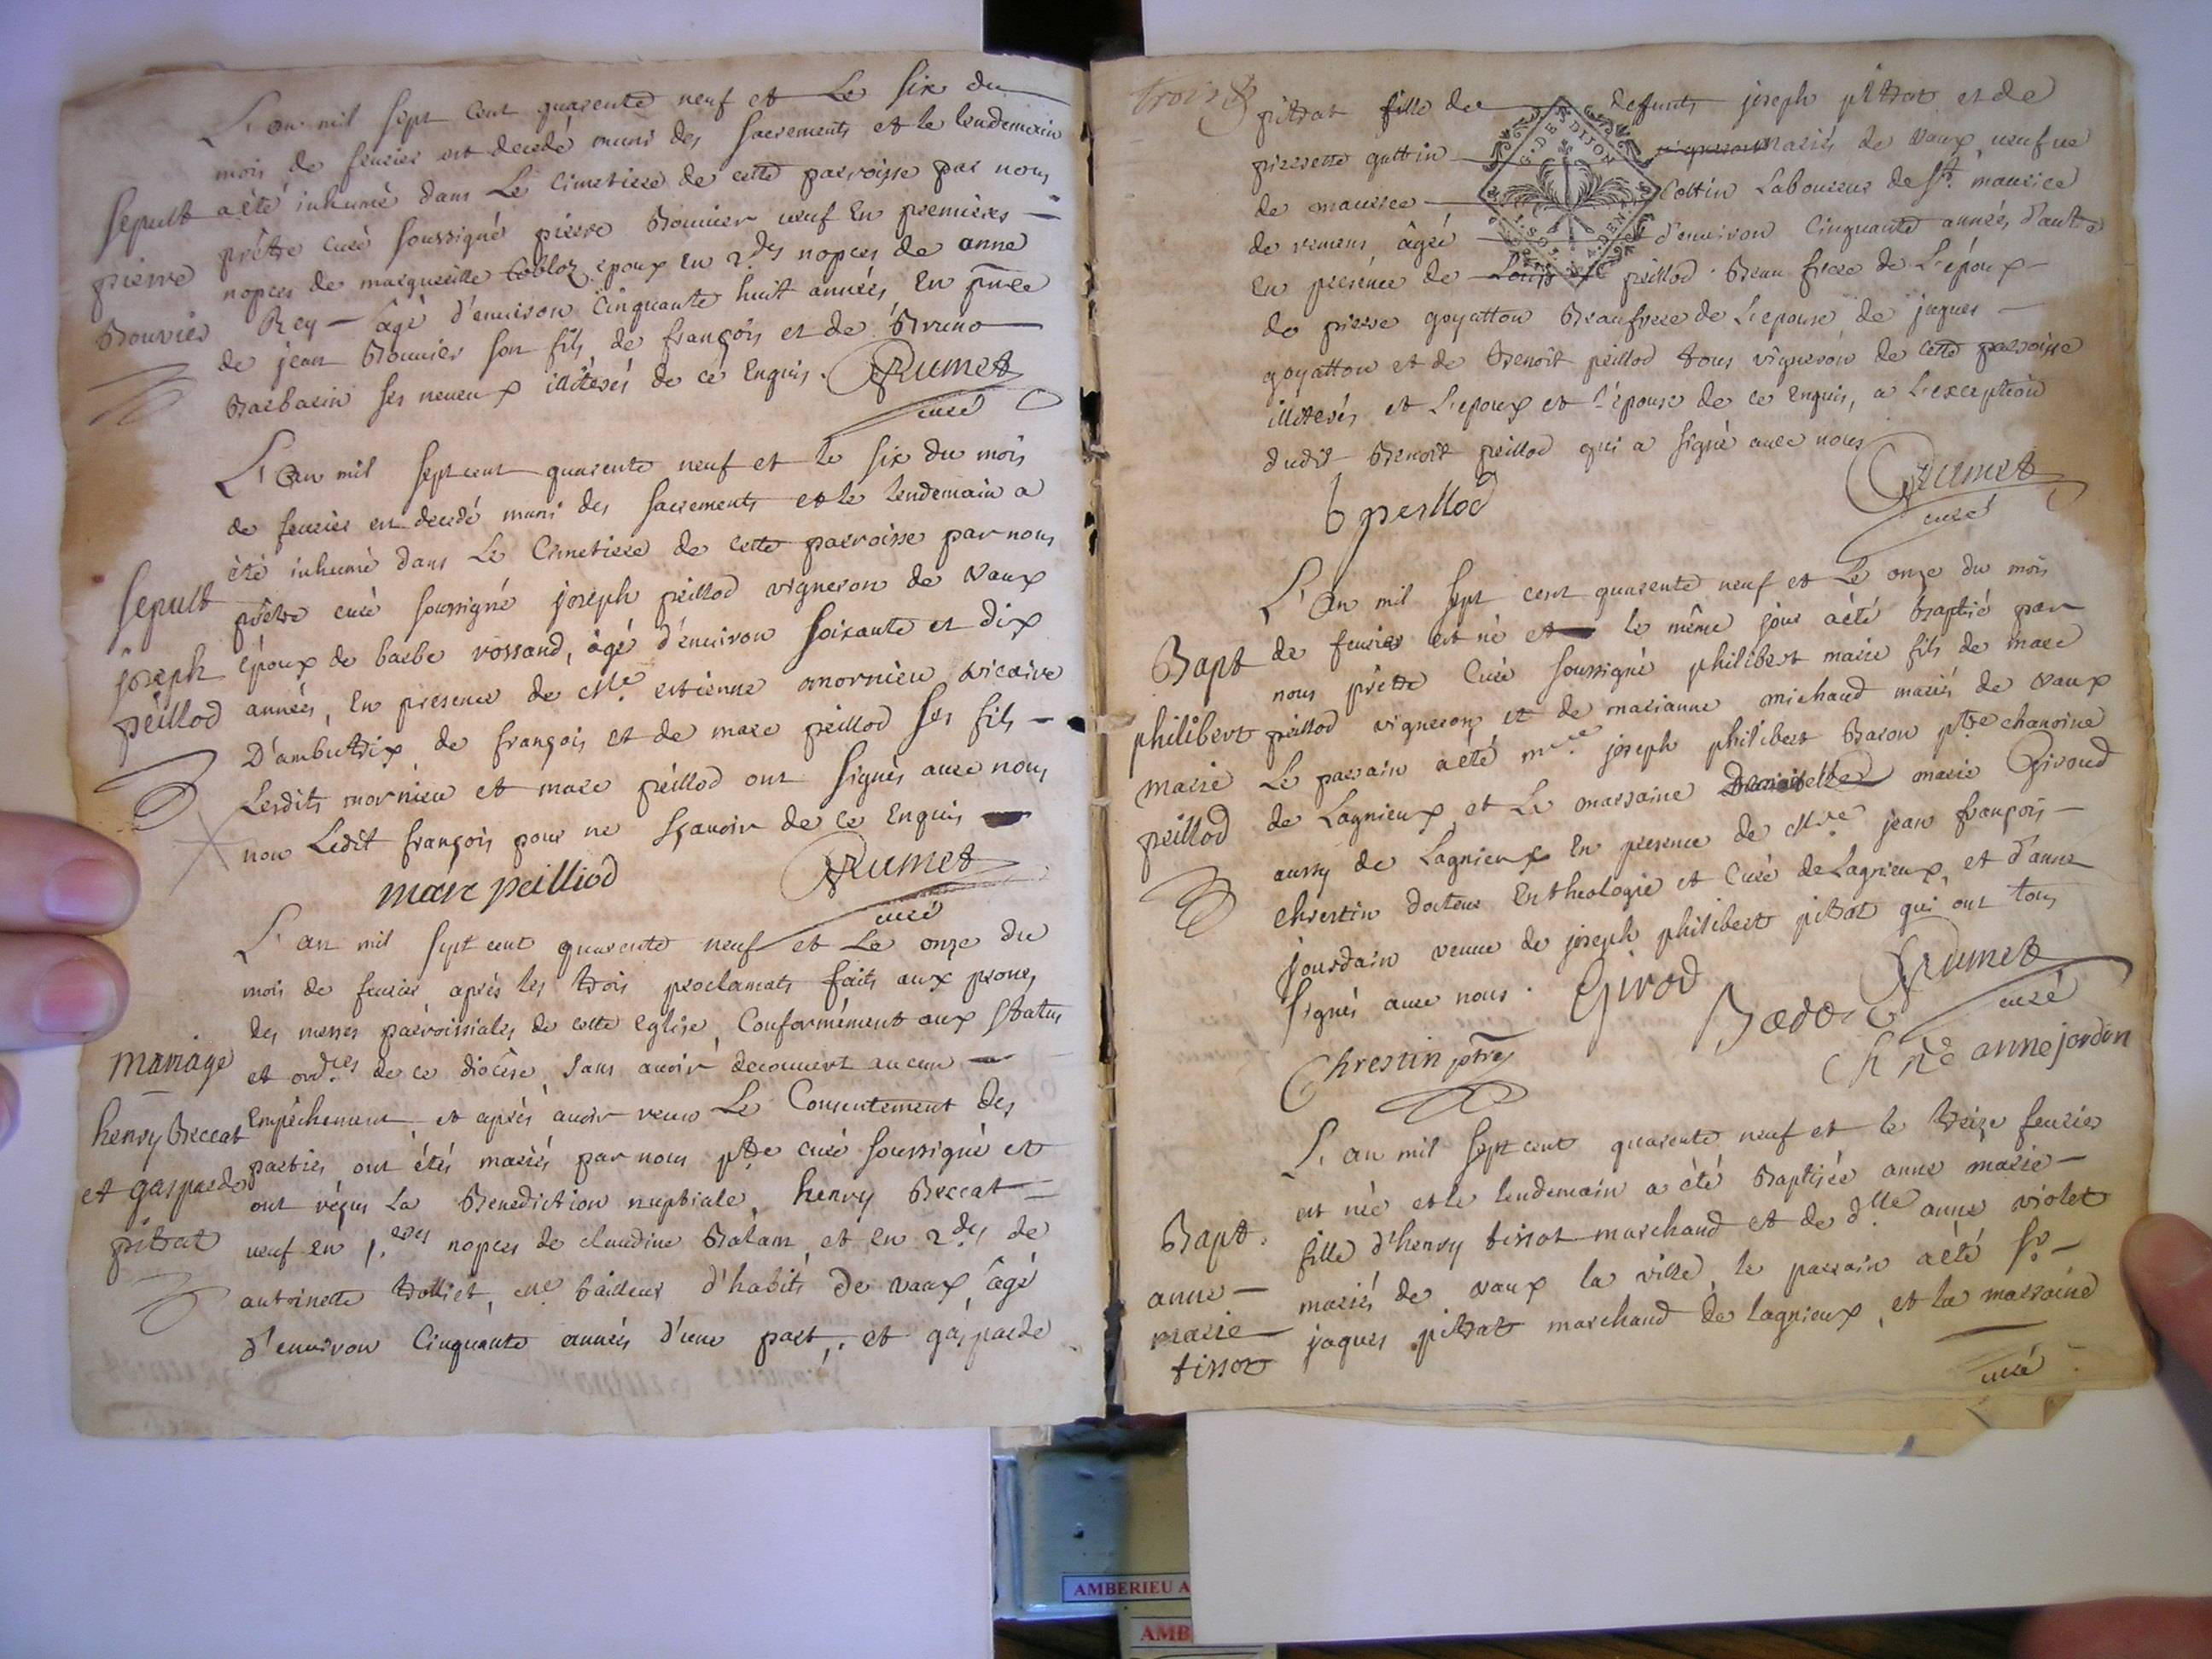 L'an mil sept cent quarente neuf et Le six du
mois de feurier est decedé muni des sacrements et le lendemain
sepult aété inhumé dans Le Cimetiere de cette parroisse par nous
prêtre curé soussigné pierre Bouuier ueuf En premieres
pierre nopces de margueritte epoux En 2des nopces de anne
Bouvier Rey - âgé d'enuiron Cinquante huit années, En pnce
de jean Bouuier son fils de françois et de Bruno
Barbarin ses neueux illiterés de ce Enquis. Rumet
curé
L'an mil sept cent quarente neuf et le six du mois
de feurier est decedé muni des sacrements et le lendemain a
été inhumé dans Le Cimetiere de cette parroisse par nous
sepult prêtre curé soussigné joseph peillod vigneron de Vaux
joseph époux de barbe rossand, âgé d'enuiron soixante et dix
peillod années, En presence de Mre estienne mornieu vicaire
D'ambutrix, de françois et de marc peillod ses fils
Lesdits mornieu et marc peillod ont signés auec nous
non Ledit françois pour ne sçauoir de ce Enquis
marc peilliod Rumet
curé
L'an mil sept cent quarente neuf et Le onze du
mois de feurier, après les trois proclamats faits aux prones
des messes parroissiales de cette Eglise, Conformément aux statuts
mariage et ordces de ce diocèse, sans auoir decouuert aucun
henry Beccat Empêchement, et après auoir receu Le Consentement des
et gasparde parties ont étés mariés par nous ptre curé soussigné et
pitrat ont réçus La Benediction nuptiale, henry Beccat
ueuf en 1eres nopces de claudine Balam, et en 2des de
antoinette trolliet, me tailleur d'habits de vaux, âgé
d'enuiron Cinquante années d'une part, et gasparde
trois
pitrat fille de defunts joseph pitrat et de
pierrette guttin mariés de vaux, ueufue
de maurice Cottin Laboureur de St maurice
de remens âgée d'enuiron Cinquante années d'autre
En presence de Louis peillod Beau frere de L'époux
de pierre goyatton Beaufrere de L'epouse, de jaques
goyatton et de Benoit peillod tous vignerons de cette parroisse
illiterés et L'epoux et l'épouse de ce Enquis, a L'exception
dudit Benoit peillod qui a signé auec nous
b peillod Rumet
curé
L'An mil sept cent quarente neuf et Le onze du mois
Bapt de feurier est né et le même jour aété Baptisé par
nous prêtre Curé soussigné philibert marie fils de marc
philibert peillod vigneron, et de marianne michaud mariés de vaux
marie Le parrain aété mre joseph philibert Baron ptre chanoine
peillod de Lagnieux, et La marraine Demoiselle marie Giroud
aussy de Lagnieux En presence de Mre jean françois
Chrestin docteur En theologie et Curé de Lagnieux, et d'anne
jourdain veuue de joseph philibert pitrat qui ont tous
signés auec nous. Girod Rumet
curé
Chrestin ptre anne jordan
L'an mil sept cent quarente neuf et le treize feurier
est née et le lendemain a été Baptisée anne marie
Bapt. fille d'henry tissot marchand et de dlle anne violet
anne mariés de vaux la ville, le parrain aété sr
marie jaques pitrat marchand de lagnieux, et la marraine
tissot
curé
G. DE DIJON
AMBERIEU A
AMB